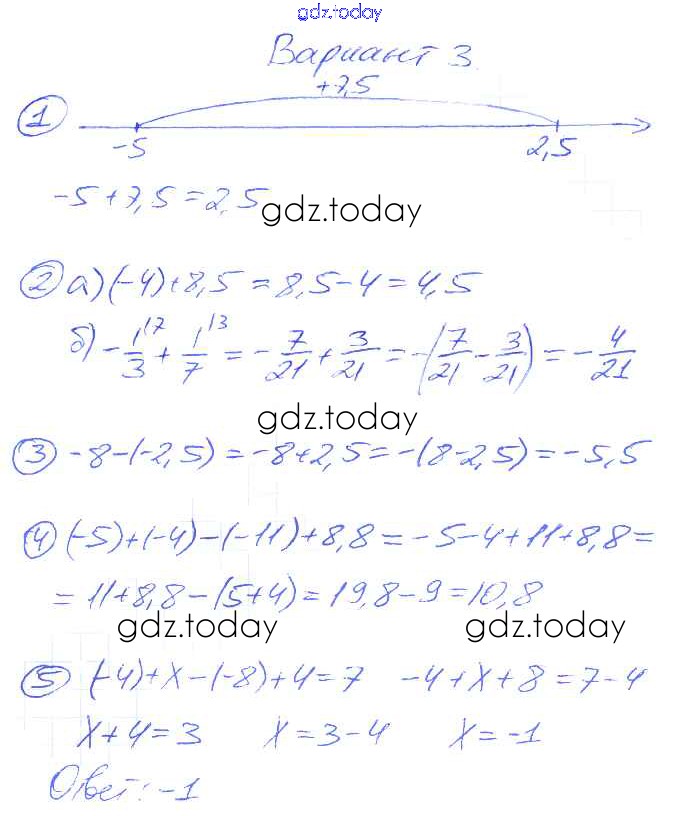 gdz.today
Вариант 3
+7,5
① -5 2,5
-5+7,5=2,5
gdz.today
② а) (-4)+8,5=8,5-4=4,5
б) -1/3^{\7}+1/7^{\3}=-7/21+3/21=-(7/21-3/21)=-4/21
gdz.today
③ -8-(-2,5)=-8+2,5=-(8-2,5)=-5,5
④ (-5)+(-4)-(-11)+8,8=-5-4+11+8,8=
=11+8,8-(5+4)=19,8-9=10,8
gdz.today gdz.today
⑤ (-4)+x-(-8)+4=7 -4+x+8=7-4
x+4=3 x=3-4 x=-1
Ответ: -1